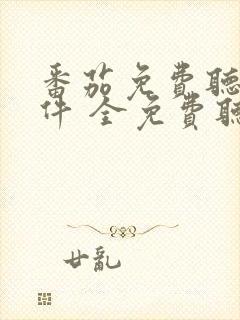 番茄免費聽
件 全免費聽
廿亂